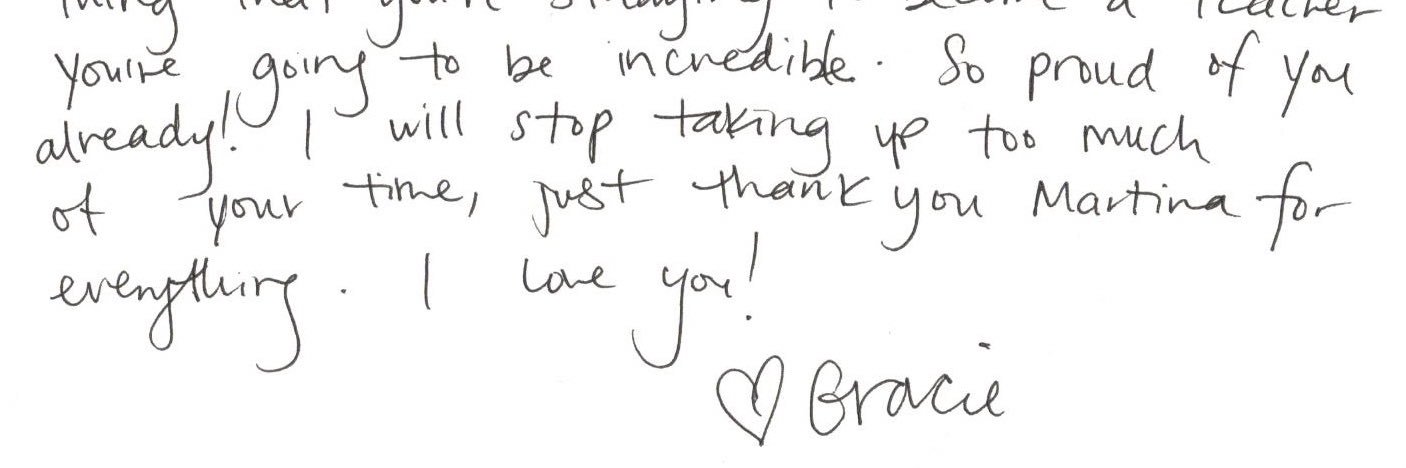 thing that you're studying to become a teacher
you're going to be incredible. So proud of you
already! I will stop taking up too much
of your time, just thank you Martina for
everything. I love you!
♡ Gracie